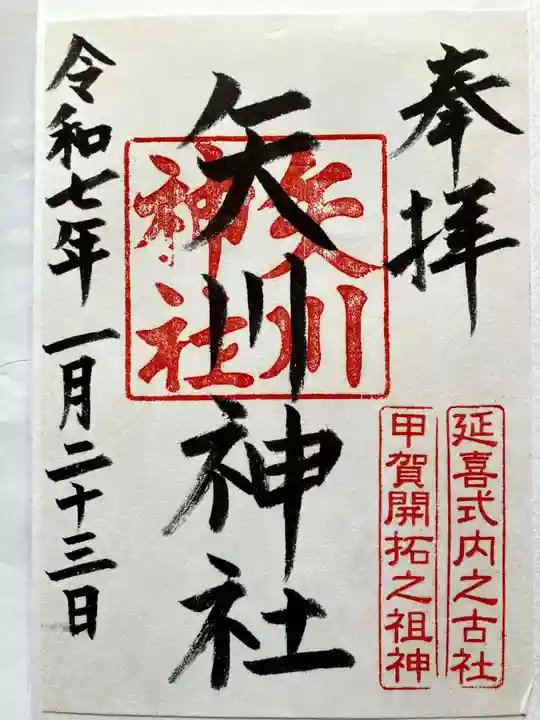 奉拝
延喜式内之古社
甲賀開拓之祖神
矢川神社
矢川
神社
令和七年 一月二十三日